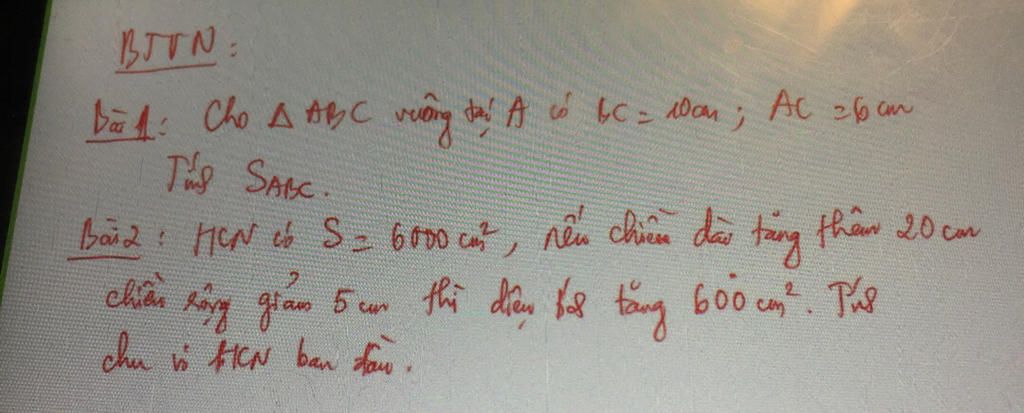 BTVN:
Bài 1: Cho Δ ABC vuông tại A có BC = 10cm; AC = 6 cm
Tính SABC.
Bài 2: HCN có S = 6000 cm², nếu chiều dài tăng thêm 20 cm
chiều rộng giảm 5 cm thì diện tích tăng 600 cm². Tính
chu vi HCN ban đầu.